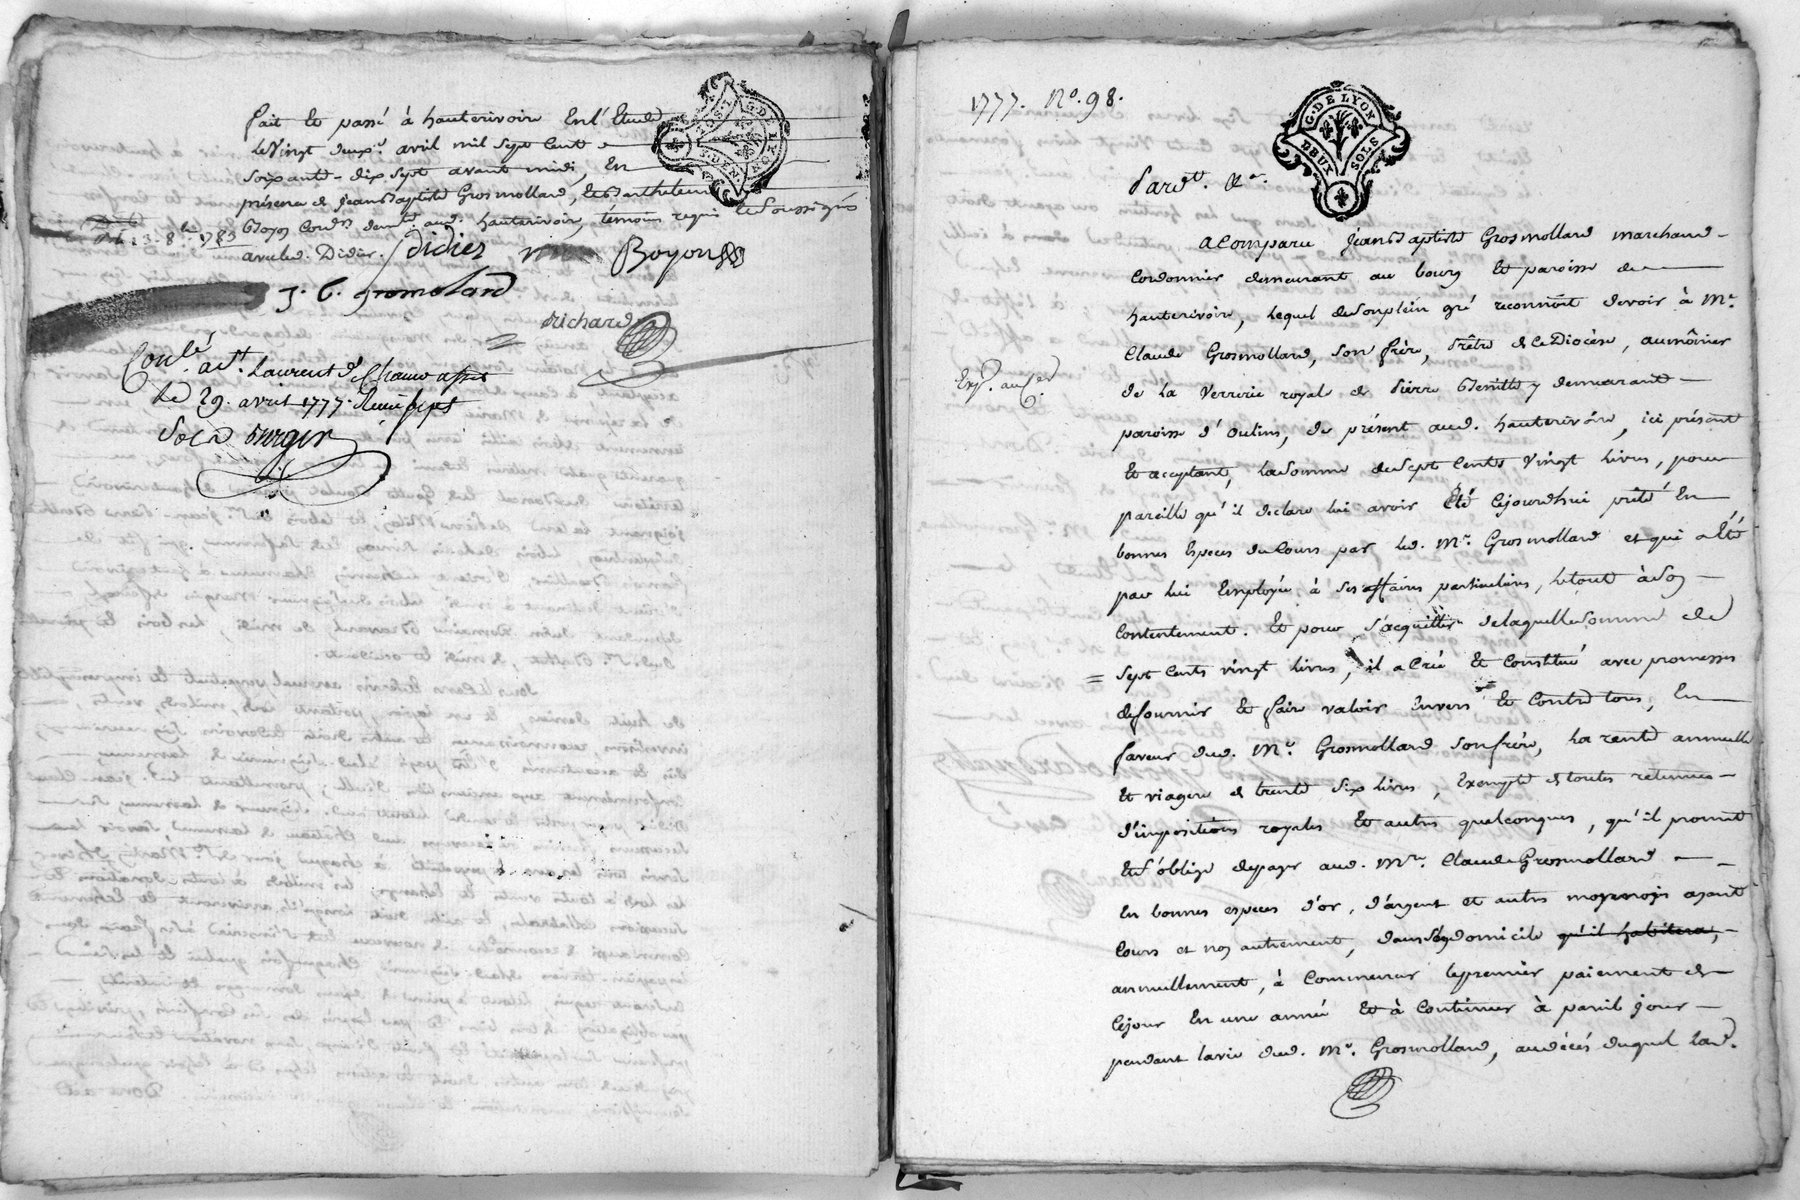 fait et passé à hauterivoire en l'Etude
le vingt deuxe. avril mil sept cent
soixante-dix sept avant midi, En
présence de jeanBaptiste Grosmollard, et Barthelemi
Boyon Cord.rs demts. aud. hauterivoire, témoins requis et soussignés
avec led. Didier.
13. 8bre. 1785
Didier
Boyon
J. b. gromolard
richard
Conlé. à St. Laurent de Chamousset
Le 29. avril 1777. Reçu
G. DE LYON
1777. No. 98.
G. DE LYON
DEUX SOLS
Pardt. &a.
a Comparu jeanBaptiste Grosmollard marchand
Cordonnier demeurant au bourg et paroisse de
hauterivoire, lequel de son plein gré reconnoit devoir à Mr.
Claude Grosmollard, son frère, Prêtre de ce Diocèse, aumônier
Exp. au Cer.
de la Verrerie royale de Pierre Benitte y demeurant
paroisse d'oulins, de présent aud. hauterivoire, ici présent
et acceptant, la somme de sept cents vingt livres, pour
pareille qu'il declare lui avoir été cejourdhui prêté En
bonnes Especes du Cours par led. Mr. Grosmollard et qui a été
par lui Employée à ses affaires particulieres, le tout à son
Contentement. Et pour s'acquitter de laquelle somme de
sept cents vingt livres, il a Créé et constitué avec promesses
de fournir et faire valoir Envers et Contre tous, En
faveur dud. Mr. Grosmollard son frère, la rente annuelle
et viagere de trente six livres, Exempte de toutes retenues
d'impositions royales et autres quelconques, qu'il promet
et s'oblige de payer aud. Mr. Claude Grosmollard
En bonnes especes d'or, d'argent et autres monnois ayant
Cours et non autrement, dans son domicile qu'il habitera,
annuellement, à Commencer le premier paiement de
Cejour En une année et à continuer à pareil jour
pendant la vie dud. Mr. Grosmollard, au décés duquel lad.